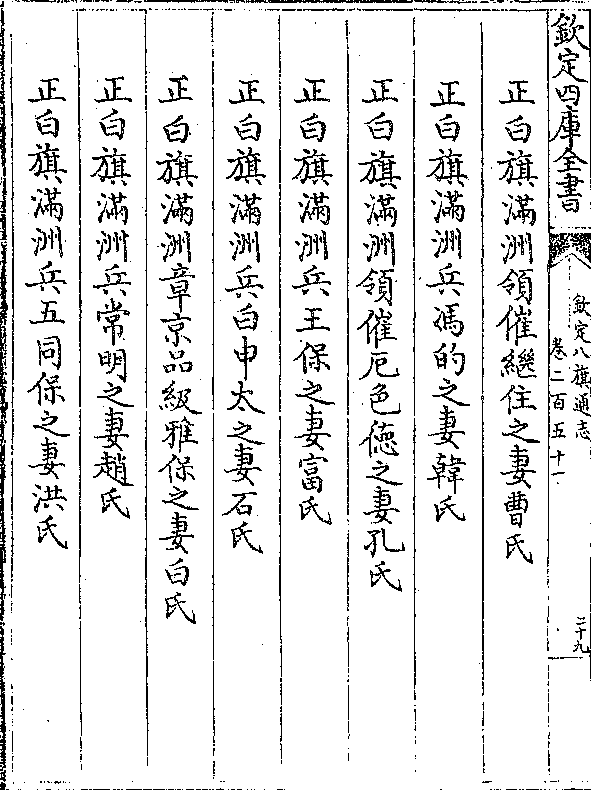 欽定四庫全書
欽定八旗通志
卷二百五十一
二十九
正白旗滿洲領催繼住之妻曹氏
正白旗滿洲兵馮的之妻韓氏
正白旗滿洲領催厄色德之妻孔氏
正白旗滿洲兵王保之妻富氏
正白旗滿洲兵白申太之妻石氏
正白旗滿洲章京品級雅保之妻白氏
正白旗滿洲兵常明之妻趙氏
正白旗滿洲兵五同保之妻洪氏